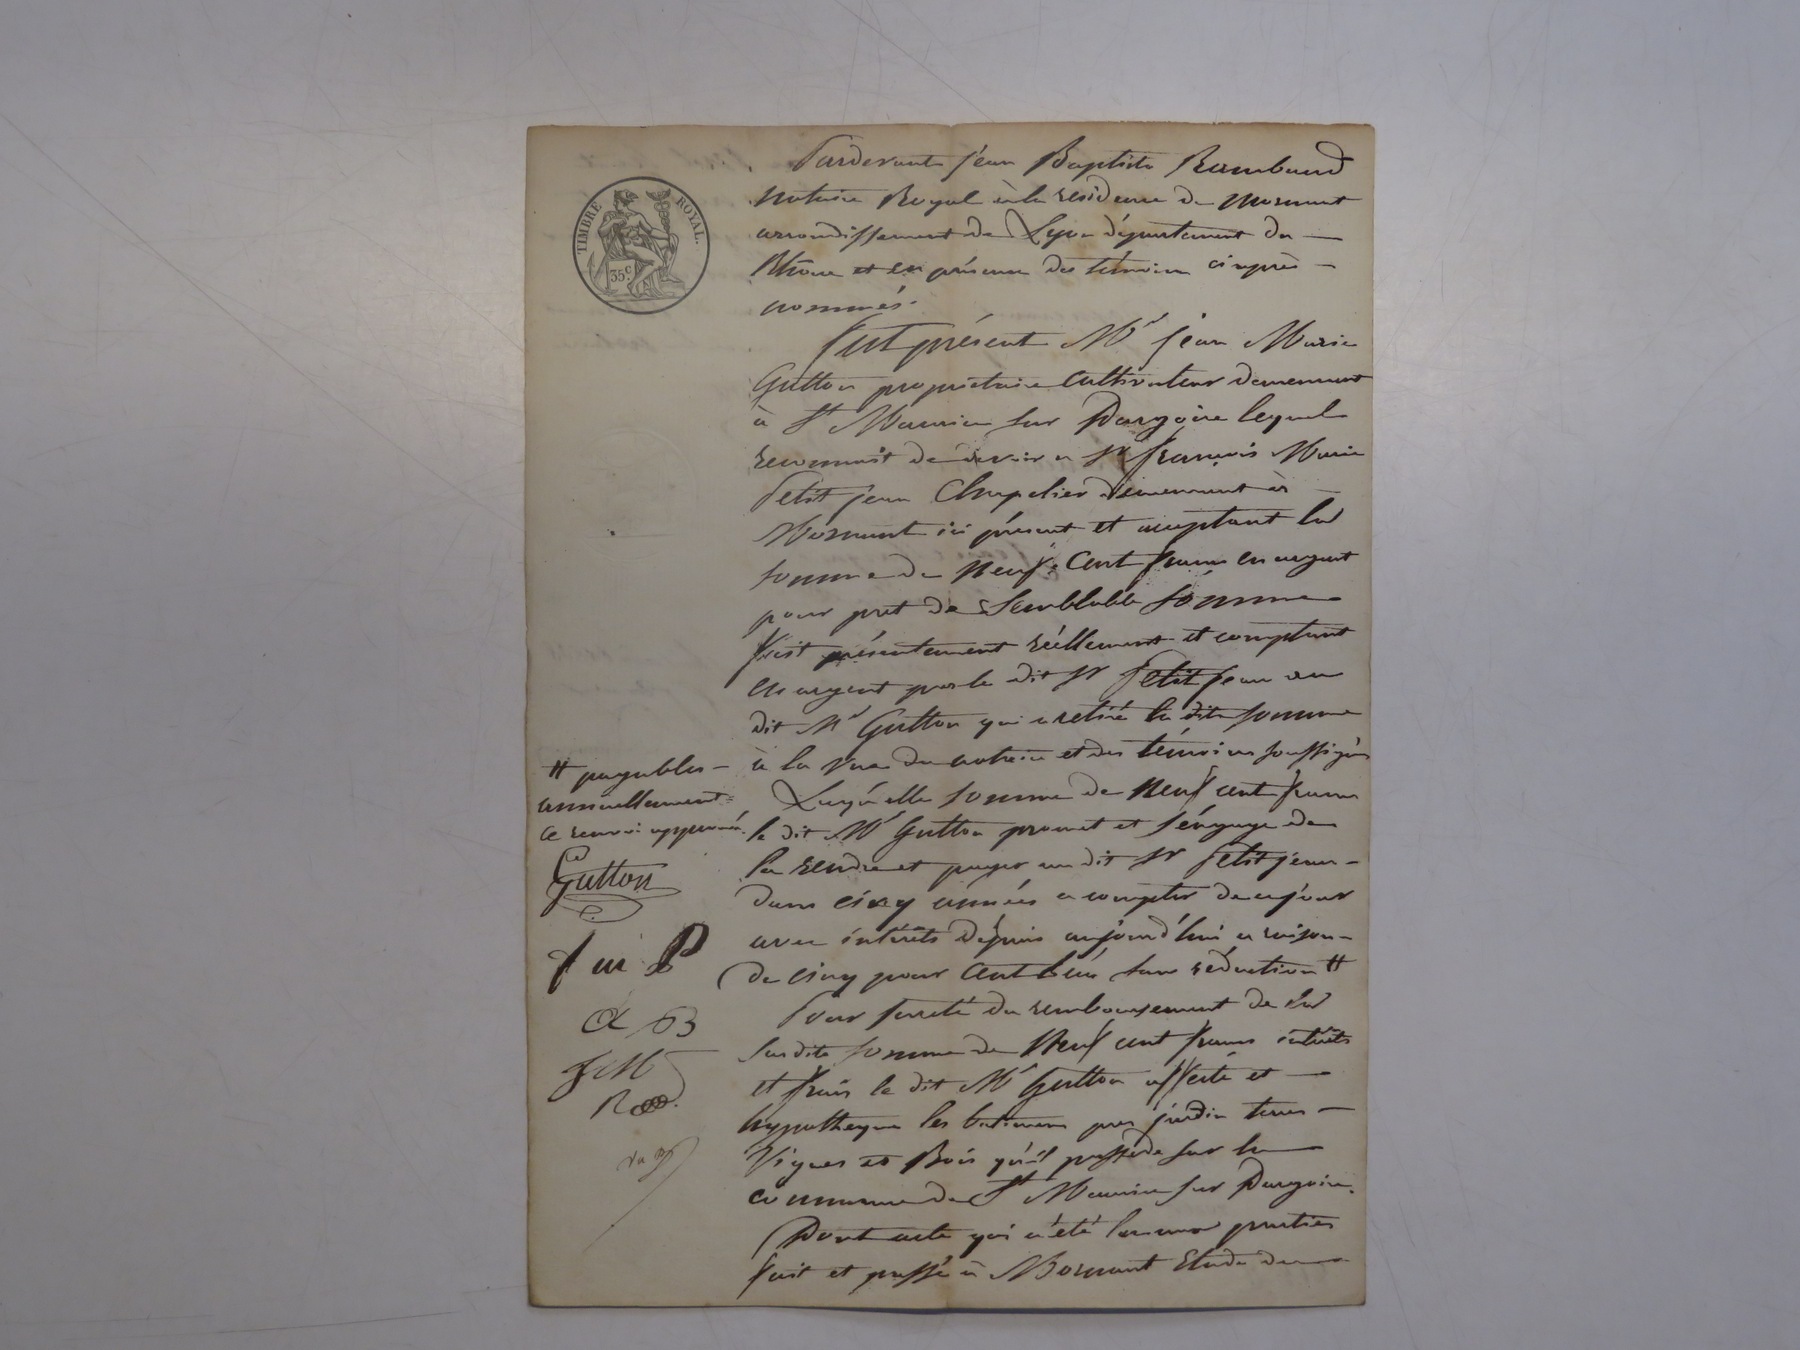 TIMBRE ROYAL.
35 c.
Pardevant jean Baptiste Rambaud
notaire Royal à la residence de Mornant
arrondissement de Lyon département du
Rhône et en présence des témoins ciaprès
nommés.
fut présent Mr jean Marie
Gutton propriétaire Cultivateur demeurant
à St Maurice sur Dargoire lequel
reconnait de devoir a Sr françois Marie
Petit jean Chapelier demeurant à
Mornant ici présent et acceptant la
somme de Neuf Cent francs en argent
pour pret de Semblable somme
fait présentement réellement et comptant
en argent par le dit Sr Petit jean au
dit Mr Gutton qui a retiré la dite somme
à la vue du notaire et des témoins soussignés
Laquelle somme de Neuf cent francs
le dit Mr Gutton promet et s'éngage de
la rendre et payer au dit Sr Petit jean
dans cinq années a compter de ce jour
avec intérêts dépuis aujourd'hui a raison
de cinq pour Cent l'an sans réduction #
Pour sureté du remboursement de la
susdite somme de Neuf cent francs intérêts
et frais le dit Mr Gutton affecte et
hypotheque les batimens pres jardin terres
Vignes et Bois qu'il possède sur la
commune de St Maurice sur Dargoire.
Dont acte qui a été lu aux parties
fait et passé à Mornant Etude de
# payables
annuellement
ce renvoi approuvé.
Gutton
f m P
JM